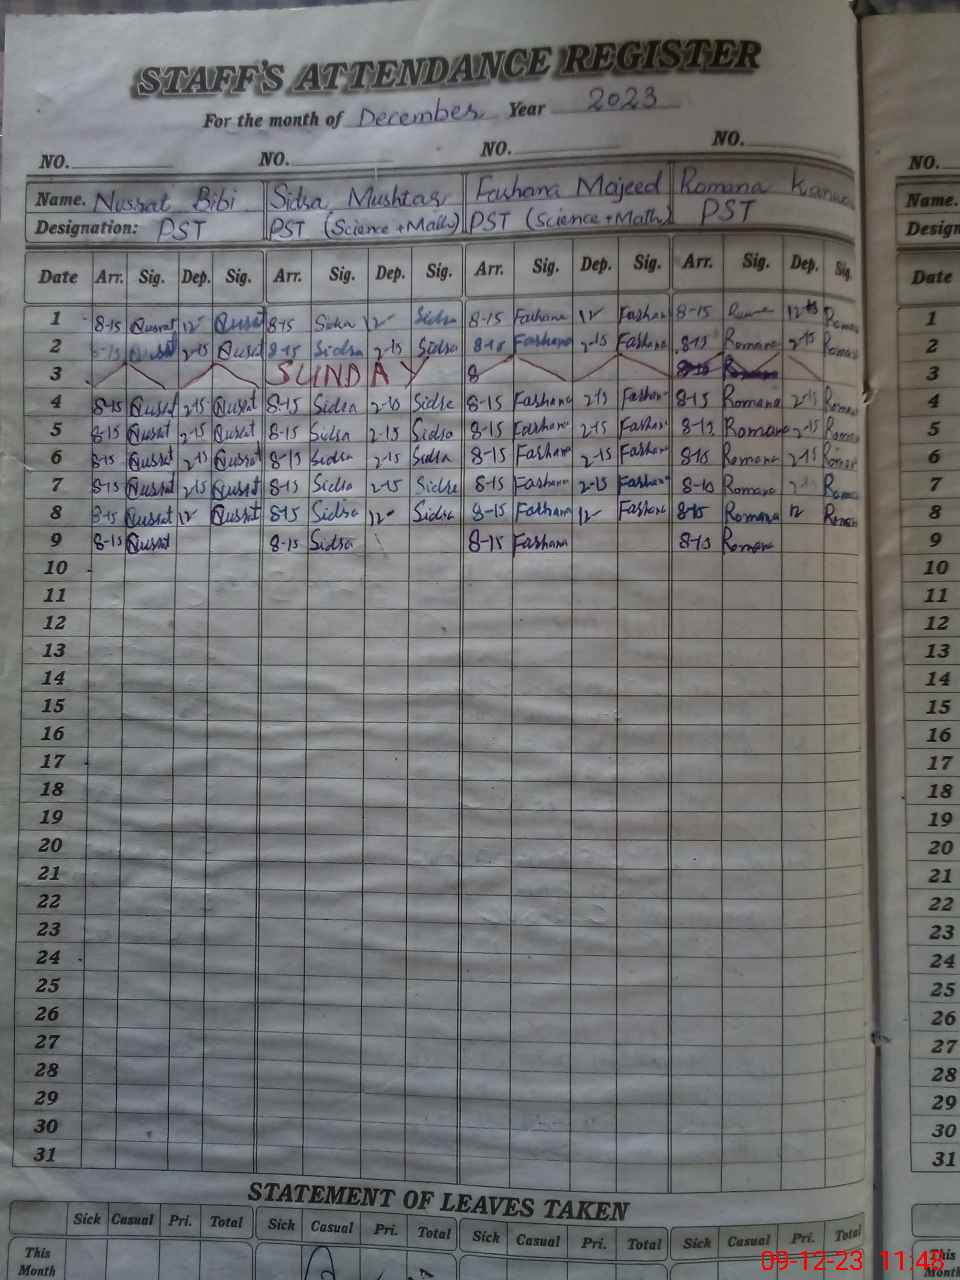 STAFF'S ATTENDANCE REGISTER
For the month of December Year 2023
NO. NO. NO. NO. NO.
Name. Nussrat Bibi Sidra Mushtaq Farhana Majeed Romana Name.
Designation: PST PST (Science + Math) PST (Science + Math) PST
Date Arr. Sig. Dep. Sig. Arr. Sig. Dep. Sig. Arr. Sig. Dep. Sig. Arr. Sig. Dep. Sig. Date
1 8-15 Nusrat 12 Nusrat 8-15 Sidra 12 Sidra 8-15 Farhana 12 Farhan 8-15 12 Roma 1
2 8-15 Nusrat 2-15 Nusrat 8-15 Sidra 2-15 Sidra 8-15 Farhana 2-15 Farhana 8-15 Romana 2-15 Roman 2
3 SUNDAY 8 3
4 8-15 Nusrat 2-15 Nusrat 8-15 Sidra 2-15 Sidra 8-15 Farhana 2-15 Farhan 8-15 Romana 2-15 Roma 4
5 8-15 Nusrat 2-15 Nusrat 8-15 Sidra 2-15 Sidra 8-15 Farhana 2-15 Farhan 8-15 Romana 2-15 Roma 5
6 8-15 Nusrat 2-15 Nusrat 8-15 Sidra 2-15 Sidra 8-15 Farhana 2-15 Farhana 8-15 Romana 2-15 Roman 6
7 8-15 Nusrat 2-15 Nusrat 8-15 Sidra 2-15 Sidra 8-15 Farhana 2-15 Farhana 8-15 Romana Roma 7
8 8-15 Nusrat 12 Nusrat 8-15 Sidra 12 Sidra 8-15 Farhana 12 Farhana 8-15 Romana 12 Roman 8
9 8-15 Nusrat 8-15 Sidra 8-15 Farhana 8-15 Romana 9
10 10
11 11
12 12
13 13
14 14
15 15
16 16
17 17
18 18
19 19
20 20
21 21
22 22
23 23
24 24
25 25
26 26
27 27
28 28
29 29
30 30
31 31
STATEMENT OF LEAVES TAKEN
Sick Casual Pri. Total Sick Casual Pri. Total Sick Casual Pri. Total Sick Casual Pri. Total
This Month This Month
09-12-23 11:48